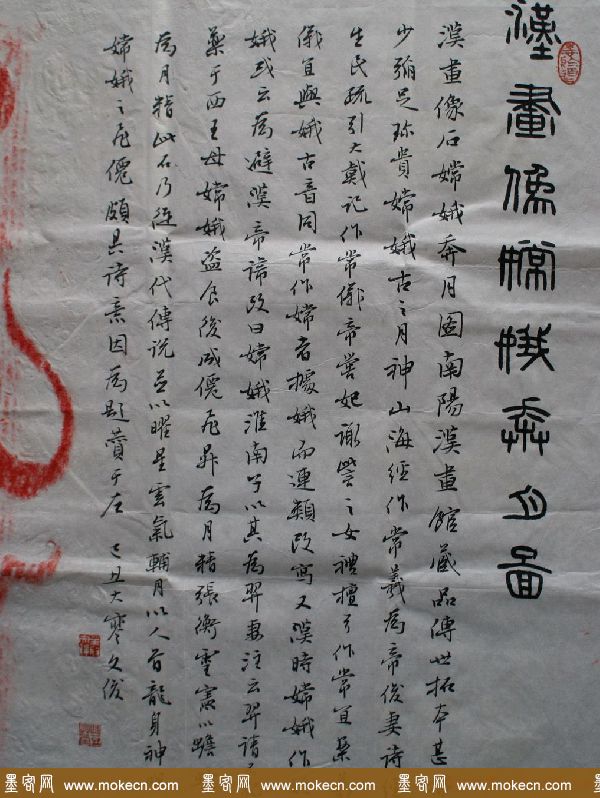 漢畫像嫦娥奔月圖
漢畫像石嫦娥奔月圖南陽漢畫館藏品傳世拓本甚
少彌足珍貴嫦娥古之月神山海經作常羲為帝俊妻詩
生民疏引大戴記作常儀帝嚳妃諏訾之女禮檀弓作常宜
儀宜與娥古音同常作嫦者據娥而連類改寫又漢時嫦娥作
娥或云為避漢帝諱改曰嫦娥淮南子以其為羿妻注云羿請
藥于西王母嫦娥盜食後成僊飛昇為月精張衡靈憲以蟾
為月精此石乃從漢代傳說並以曜星雲氣輔月以人首龍身神
嫦娥之飛僊頗具詩意因為題贊于左 己丑大寒文俊
墨客网 www.mokecn.com 墨客网 www.mokecn.com 墨客网 www.mokecn.com